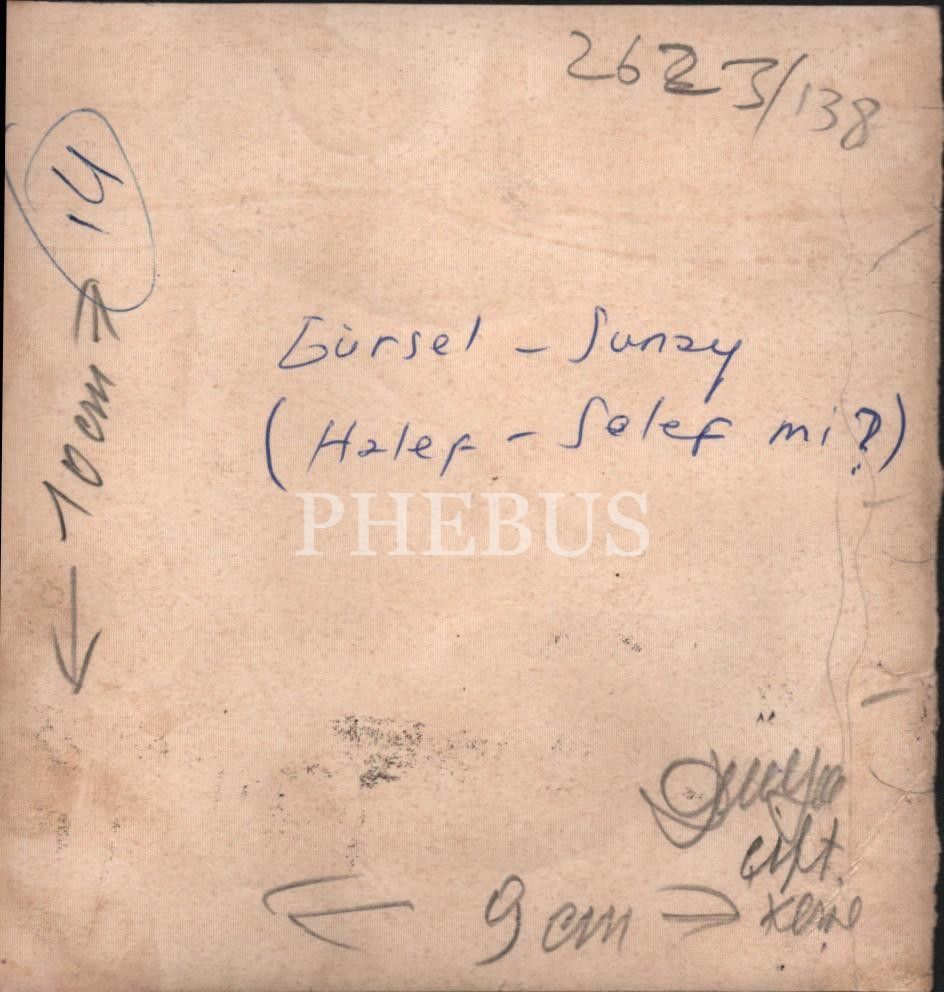 2623/138
14
10 cm
Gürsel - Sunay
(Halef - Selef mi?)
PHEBUS
çift
9 cm